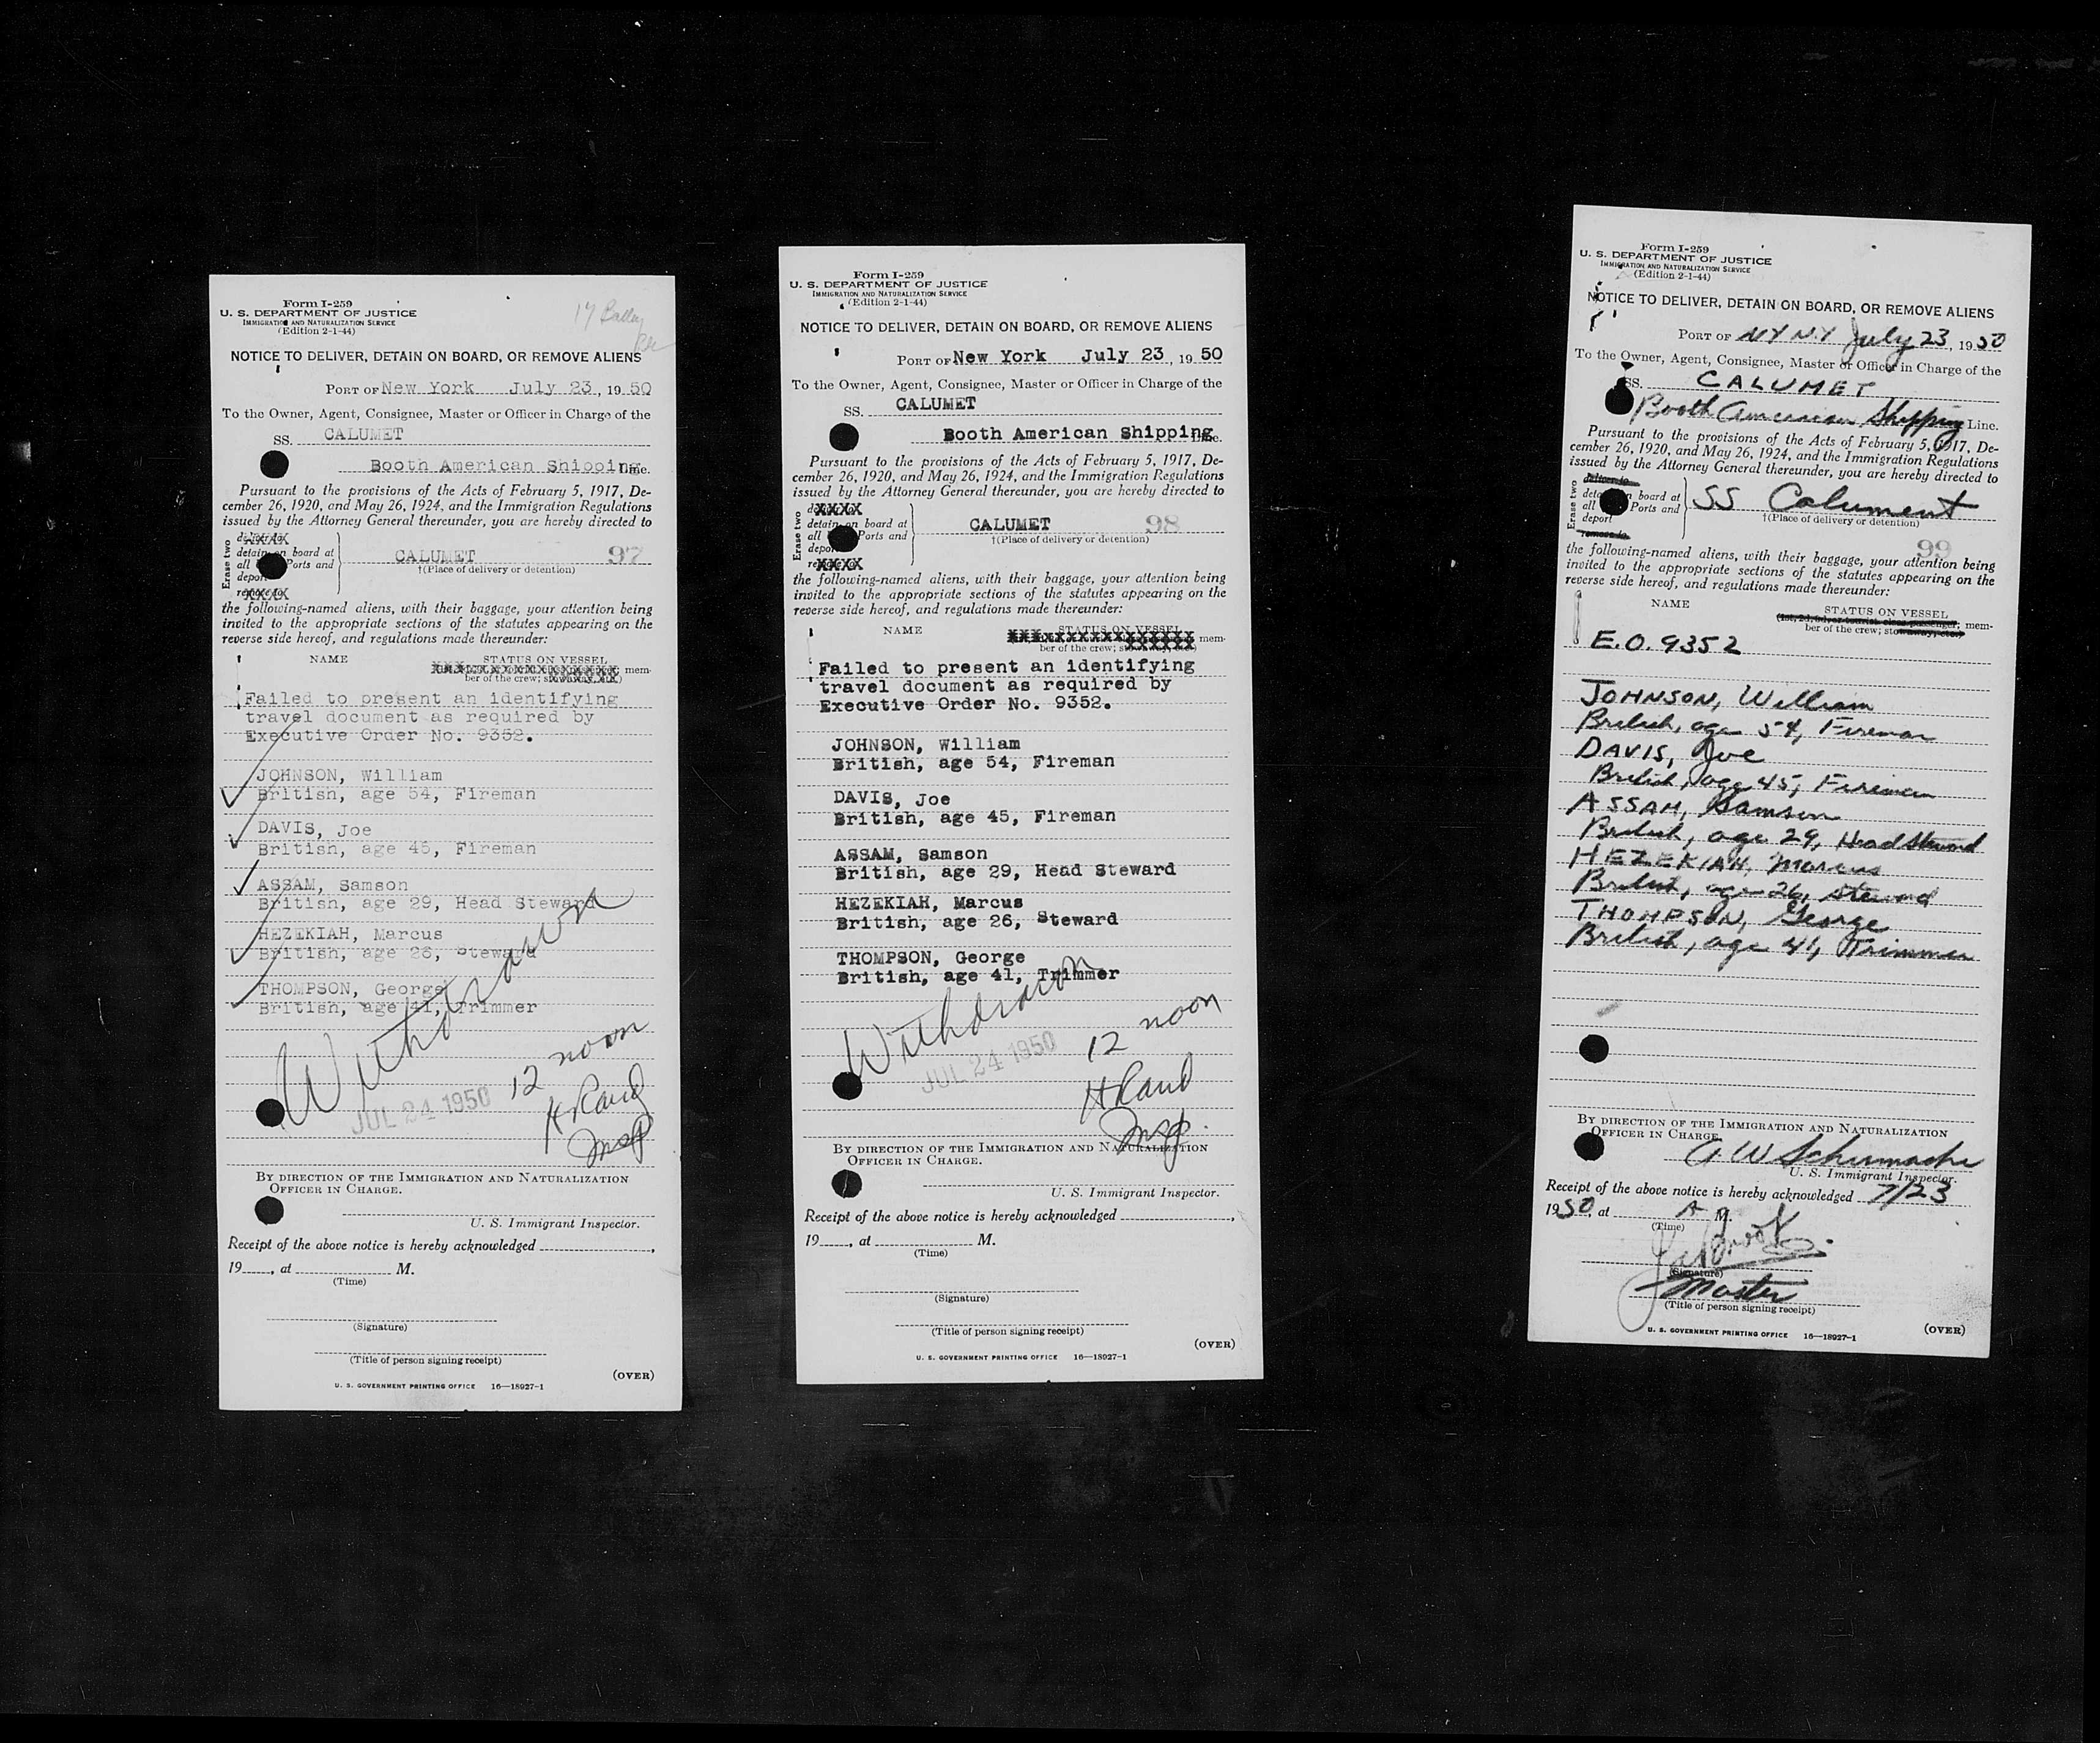 Form I-259
U. S. DEPARTMENT OF JUSTICE
IMMIGRATION AND NATURALIZATION SERVICE
(Edition 2-1-44)
17
NOTICE TO DELIVER, DETAIN ON BOARD, OR REMOVE ALIENS
PORT OF New York July 23, 19 50
To the Owner, Agent, Consignee, Master or Officer in Charge of the
SS. CALUMET
Booth American Shipping Line.
Pursuant to the provisions of the Acts of February 5, 1917, De-
cember 26, 1920, and May 26, 1924, and the Immigration Regulations
issued by the Attorney General thereunder, you are hereby directed to
Erase two
detain on board at
all Ports and
deport
CALUMET 97
†(Place of delivery or detention)
the following-named aliens, with their baggage, your attention being
invited to the appropriate sections of the statutes appearing on the
reverse side hereof, and regulations made thereunder:
NAME STATUS ON VESSEL
mem-
ber of the crew;
Failed to present an identifying
travel document as required by
Executive Order No. 9352.
JOHNSON, William
British, age 54, Fireman
DAVIS, Joe
British, age 45, Fireman
ASSAM, Samson
British, age 29, Head Steward
HEZEKIAH, Marcus
British, age 26, Steward
THOMPSON, George
British, age 41, Trimmer
Withdrawn
12 noon
JUL 24 1950
H Rand
Insp
BY DIRECTION OF THE IMMIGRATION AND NATURALIZATION
OFFICER IN CHARGE.
U. S. Immigrant Inspector.
Receipt of the above notice is hereby acknowledged ,
19 , at M.
(Time)
(Signature)
(Title of person signing receipt)
(OVER)
U. S. GOVERNMENT PRINTING OFFICE 16—18927-1
Form I-259
U. S. DEPARTMENT OF JUSTICE
IMMIGRATION AND NATURALIZATION SERVICE
(Edition 2-1-44)
NOTICE TO DELIVER, DETAIN ON BOARD, OR REMOVE ALIENS
PORT OF New York July 23, 19 50
To the Owner, Agent, Consignee, Master or Officer in Charge of the
SS. CALUMET
Booth American Shipping Line.
Pursuant to the provisions of the Acts of February 5, 1917, De-
cember 26, 1920, and May 26, 1924, and the Immigration Regulations
issued by the Attorney General thereunder, you are hereby directed to
Erase two
detain on board at
all Ports and
deport
CALUMET 98
†(Place of delivery or detention)
the following-named aliens, with their baggage, your attention being
invited to the appropriate sections of the statutes appearing on the
reverse side hereof, and regulations made thereunder:
NAME STATUS ON VESSEL
mem-
ber of the crew;
Failed to present an identifying
travel document as required by
Executive Order No. 9352.
JOHNSON, William
British, age 54, Fireman
DAVIS, Joe
British, age 45, Fireman
ASSAM, Samson
British, age 29, Head Steward
HEZEKIAH, Marcus
British, age 26, Steward
THOMPSON, George
British, age 41, Trimmer
Withdrawn
12 noon
JUL 24 1950
H Rand
Insp.
BY DIRECTION OF THE IMMIGRATION AND NATURALIZATION
OFFICER IN CHARGE.
U. S. Immigrant Inspector.
Receipt of the above notice is hereby acknowledged ,
19 , at M.
(Time)
(Signature)
(Title of person signing receipt)
(OVER)
U. S. GOVERNMENT PRINTING OFFICE 16—18927-1
Form I-259
U. S. DEPARTMENT OF JUSTICE
IMMIGRATION AND NATURALIZATION SERVICE
(Edition 2-1-44)
NOTICE TO DELIVER, DETAIN ON BOARD, OR REMOVE ALIENS
PORT OF NY N.Y July 23, 19 50
To the Owner, Agent, Consignee, Master or Officer in Charge of the
SS. CALUMET
Booth American Shipping Line.
Pursuant to the provisions of the Acts of February 5, 1917, De-
cember 26, 1920, and May 26, 1924, and the Immigration Regulations
issued by the Attorney General thereunder, you are hereby directed to
Erase two
deliver to
detain on board at
all Ports and
deport
remove to
SS Calument
†(Place of delivery or detention)
99
the following-named aliens, with their baggage, your attention being
invited to the appropriate sections of the statutes appearing on the
reverse side hereof, and regulations made thereunder:
NAME STATUS ON VESSEL
(1st, 2d, 3d, or tourist, class passenger; mem-
ber of the crew; stowaway, etc.)
E.O. 9352
JOHNSON, William
British, age 54, Fireman
DAVIS, Joe
British, age 45, Fireman
ASSAM, Samson
British, age 29, Head Steward
HEZEKIAH, Marcus
British, age 26, Steward
THOMPSON, George
British, age 41, Trimmer
BY DIRECTION OF THE IMMIGRATION AND NATURALIZATION
OFFICER IN CHARGE.
G W Schumache
U. S. Immigrant Inspector.
Receipt of the above notice is hereby acknowledged 7/23
19 50, at A M.
(Time)
(Signature)
Master
(Title of person signing receipt)
U. S. GOVERNMENT PRINTING OFFICE 16—18927-1 (OVER)